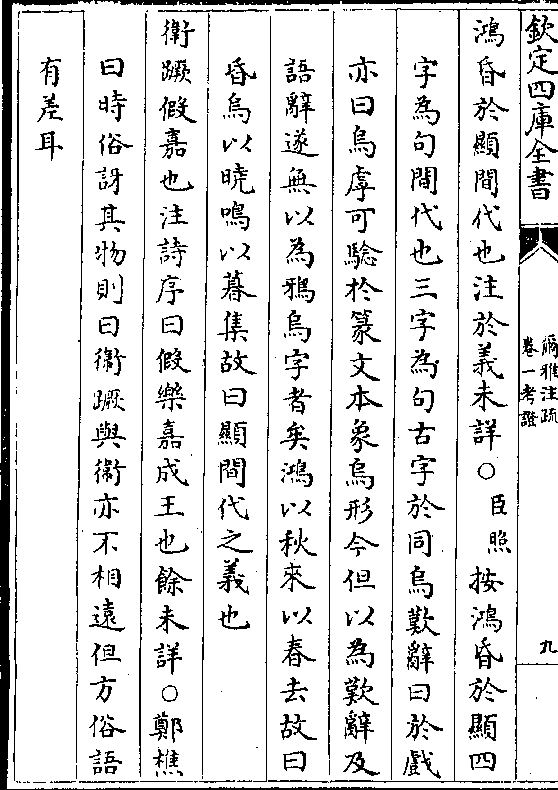 欽定四庫全書
爾雅注疏
卷一考證
九
鴻昏於顯間代也注於義未詳○臣照按鴻昏於顯四
字為句間代也三字為句古字於同烏歎辭曰於戲
亦曰烏虖可驗於篆文本象烏形今但以為歎辭及
語辭遂無以為鴉烏字者矣鴻以秋來以春去故曰
昏烏以曉鳴以暮集故曰顯間代之義也
衛蹶假嘉也注詩序曰假樂嘉成王也餘未詳○鄭樵
曰時俗訝其物則曰衛蹶與衛亦不相遠但方俗語
有差耳